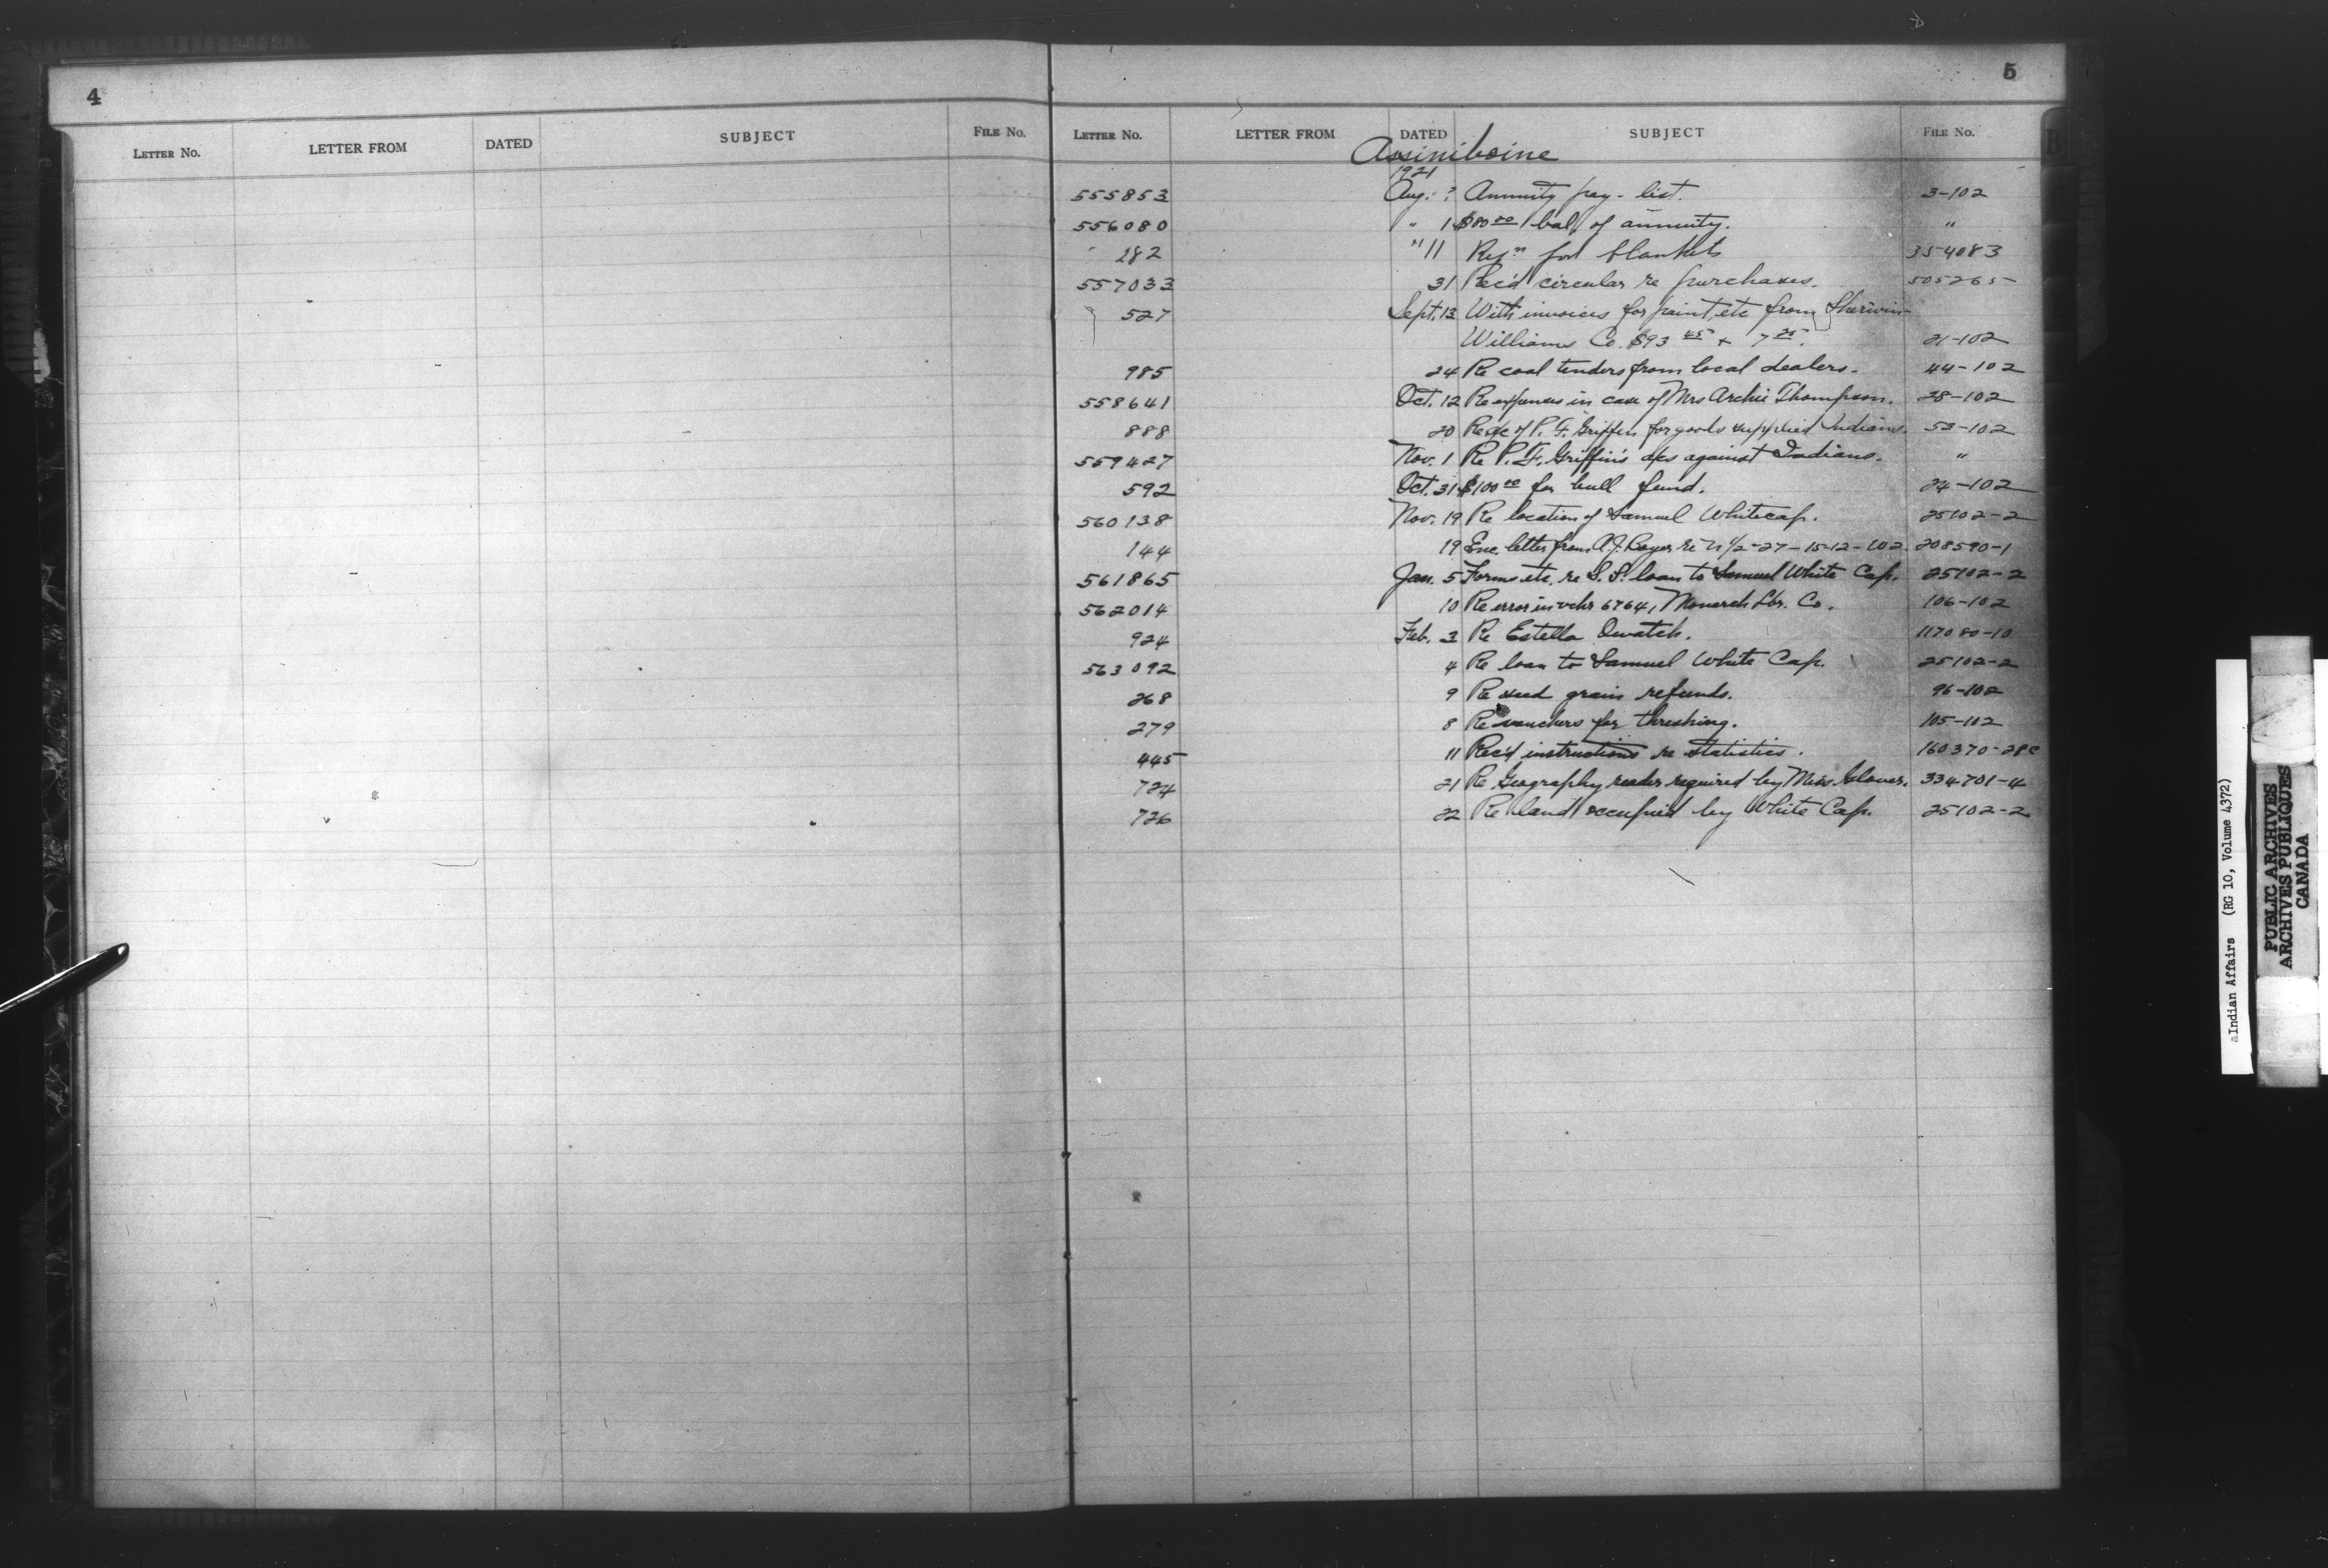 4
5
LETTER NO. LETTER FROM DATED SUBJECT FILE NO.
LETTER NO. LETTER FROM DATED SUBJECT FILE NO.
Assiniboine
1921
555853 Aug. ? Annuity pay-list. 3-102
556080 " 1 $80 00 bal. of annuity. "
" 282 " 11 Reqn for blankets 354083
557033 31 Rec'd circular re purchases. 505265
527 Sept. 13 With invoices for paint, etc from Sherwin-
Williams Co. $93 45 + 7 25. 21-102
985 24 Re coal tenders from local dealers. 44-102
558641 Oct. 12 Re expenses in case of Mrs Archie Thompson. 28-102
888 20 Re a/c of P. F. Griffin for goods supplied Indians. 53-102
559427 Nov. 1 Re P. F. Griffin's a/cs against Indians. "
592 Oct. 31 $100 00 for bull fund. 24-102
560138 Nov. 19 Re location of Samuel Whitecap. 25102-2
144 19 Enc. letter from A. J. re N 1/2-27-15-12-W2. 208590-1
561865 Jan. 5 Forms etc. re S. S. loan to Samuel White Cap. 25102-2
562014 10 Re error in vchr 67641, Monarch Lbr. Co. 106-102
924 Feb. 3 Re Estella Owatch. 117080-10
563092 4 Re loan to Samuel White Cap. 25102-2
268 9 Re seed grain refunds. 96-102
279 8 Re vouchers for threshing. 105-102
445 11 Rec'd instructions re statistics. 160370-28c
724 21 Re Geography reader required by Miss Glover. 334701-4
726 22 Re land occupied by White Cap. 25102-2
Indian Affairs (RG 10, Volume 4372)
PUBLIC ARCHIVES
ARCHIVES PUBLIQUES
CANADA